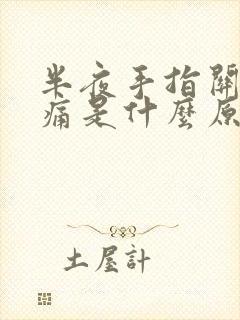 半夜手指關
痛是什麼原
土屋計